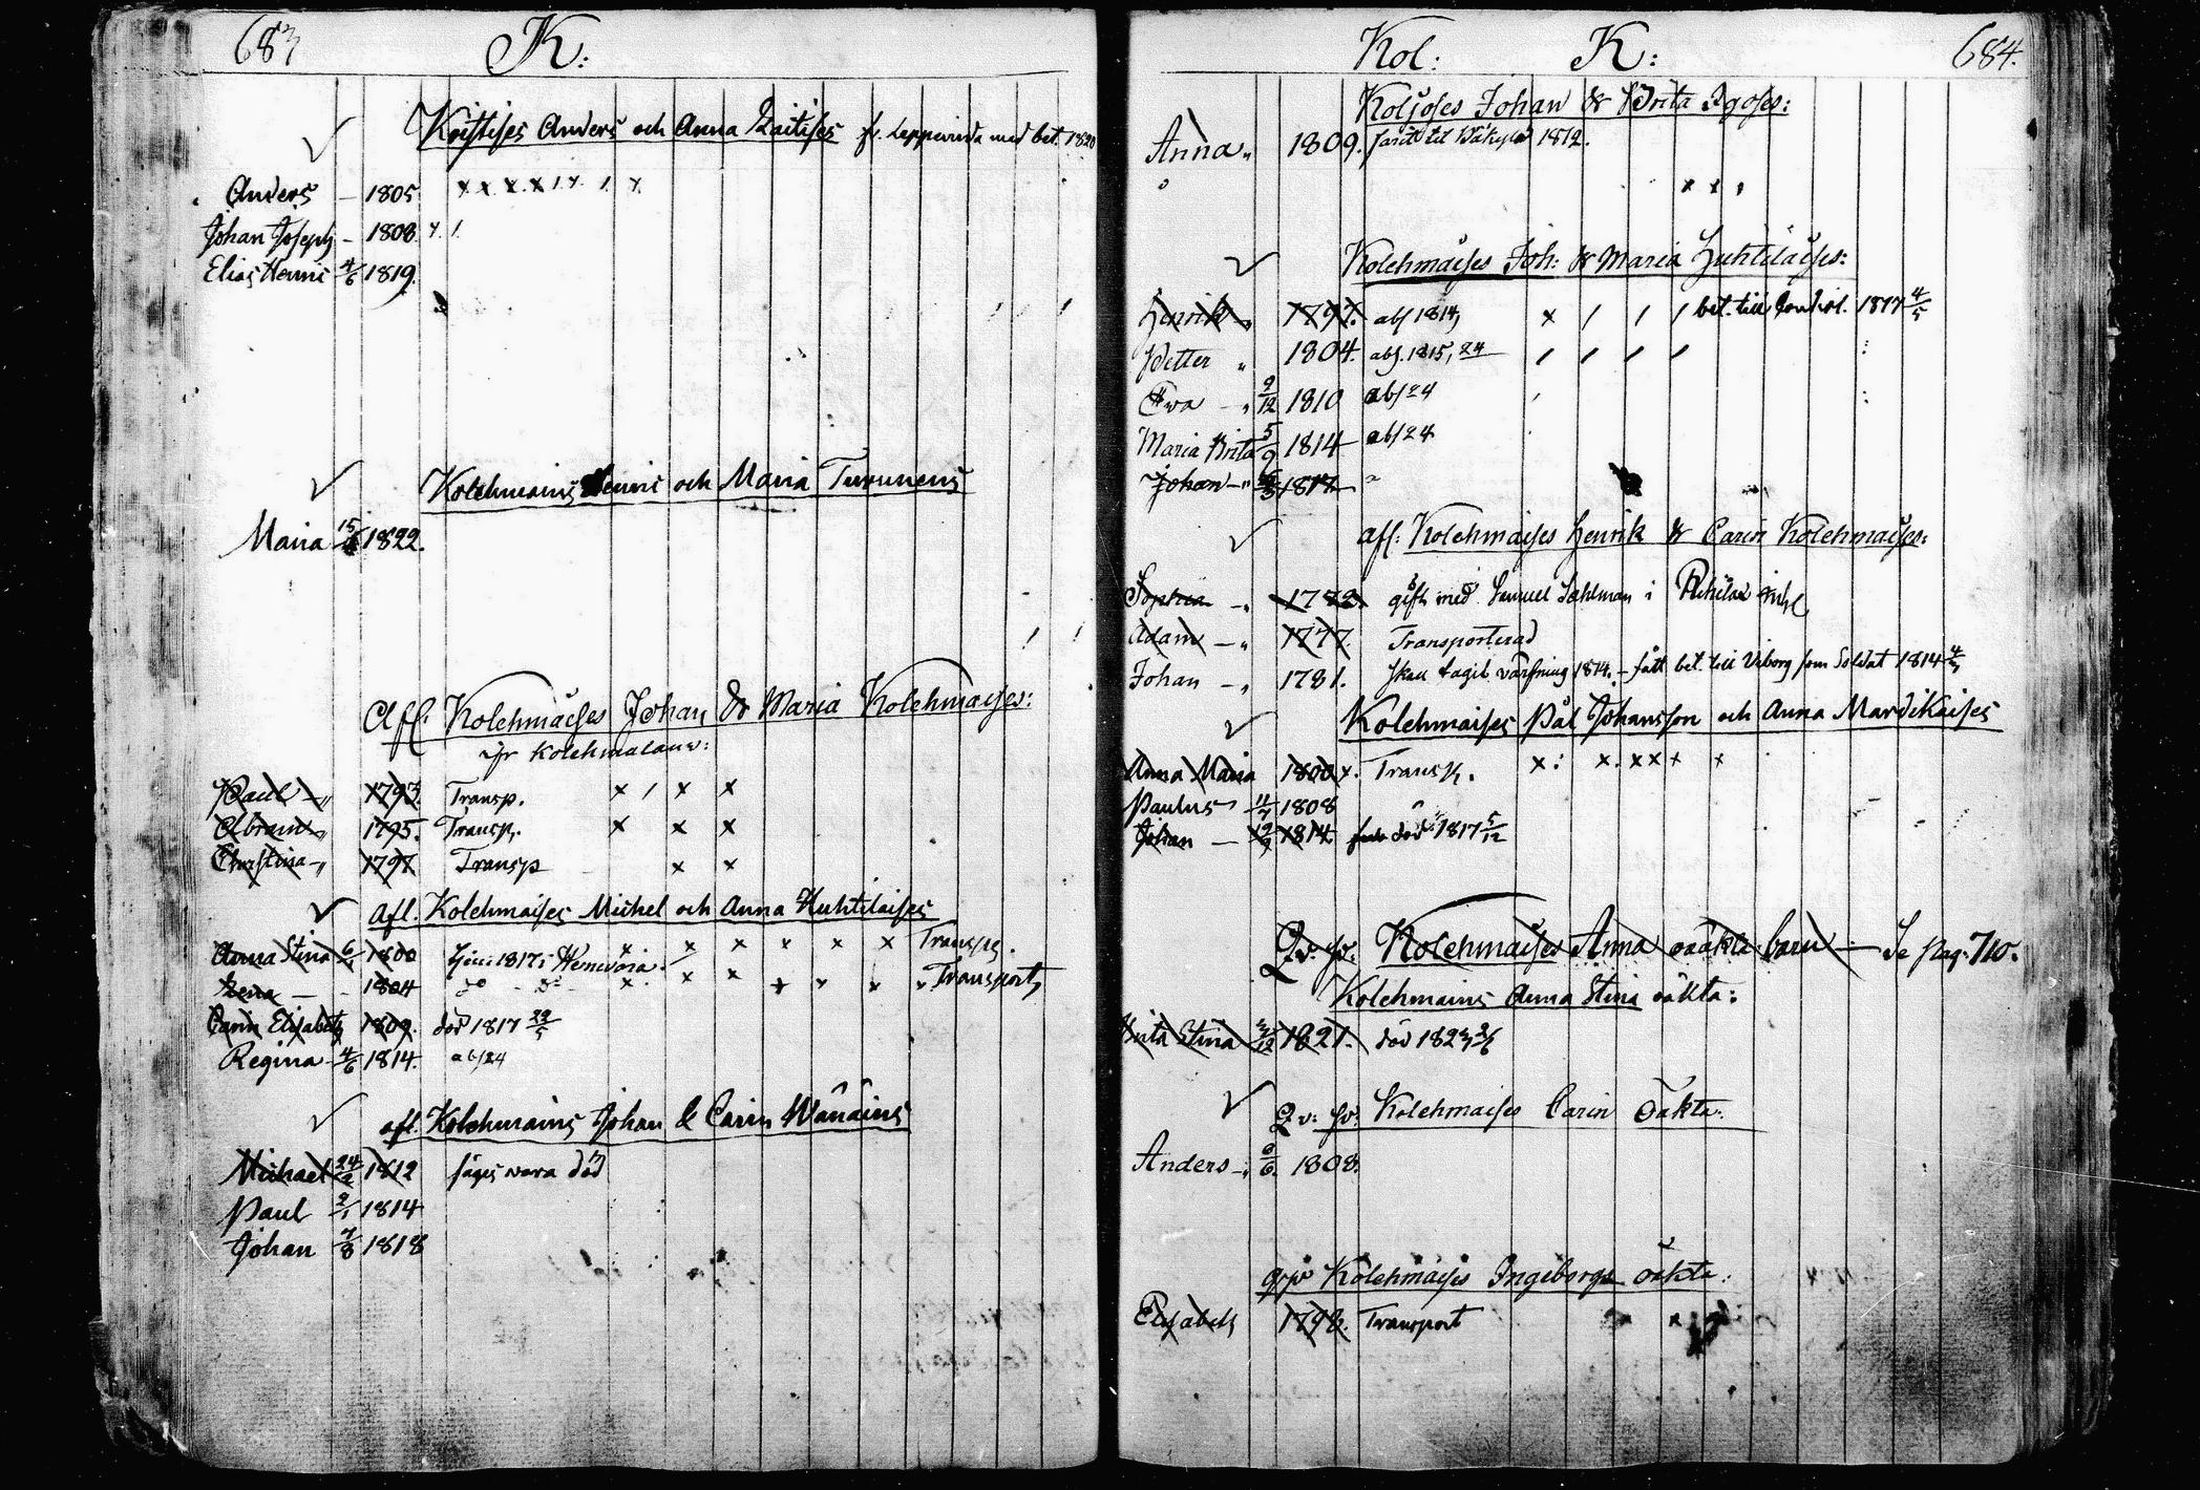 683
K:
Koistises Anders och Anna Laitises fr. Leppävirda med bet. 1820
Anders — 1805 x x x x / x / x
Johan Joseph — 1808 x /
Elias Hennic 4/6 1819.
Kolehmains Hennic och Maria Turunens
Maria 15 1822.
Afl. Kolehmaises Johan & Maria Kolehmaises:
fr Kolehmalanv:
Paul — 1793. Transp. x / x x
Abram 1795. Transp. x x x
Christina — 1797 Transp x x
Afl. Kolehmaises Michel och Anna Huhtilaises
Anna Stina 6 1800 1817 x x x x x x Transp.
Lena — 1804 do x x x x x x Transport
Carin Elisabeth 1809. död 1817 29/5
Regina 4/6 1814. abs 24
afl. Kolehmains Johan & Carin Wänäins
Michael 24 1812 säges wara död
Paul 2/1 1814
Johan 7/8 1818
Kol: K: 684.
Koljoses Johan & Brita Igoses:
Anna „ 1809. 1812.
x x ,
Kolehmaises Joh: & Maria Huhtilaises:
Henrik „ 1797. abs 1814, x / / / bet. till 1817 4/5
Petter „ 1804. abs. 1815, 24 / / / /
Ewa — „ 9/12 1810 abs 24
Maria Brita 5/9 1814 abs 24
Johan — „ 1817
afl: Kolehmaises Henrik & Carin Kolehmaises:
Sophia — „ gift med Samuel Sahlman i
Adam — „ 1777. Transporterad
Johan — „ 1781. skall tagit värfning 1814. – fått bet. till Viborg som Soldat 1814
Kolehmaises Pål Johansson och Anna Mardikaises
Anna Maria 1800 Transp. x: x. x x x x
Paulus 1808
Johan — 1814 död 1817 5/12
Qv. pr. Kolehmaises Anna oäkta barn — Se pag. 710.
Kolehmains Anna Stina oäkta:
Brita Stina 1821. död 1823
Qv: pr: Kolehmaises Carin Oäkta:
Anders — „ 6/6. 1808.
Kolehmaises Ingeborgs oäkta:
Elisabeth 1798. Transport